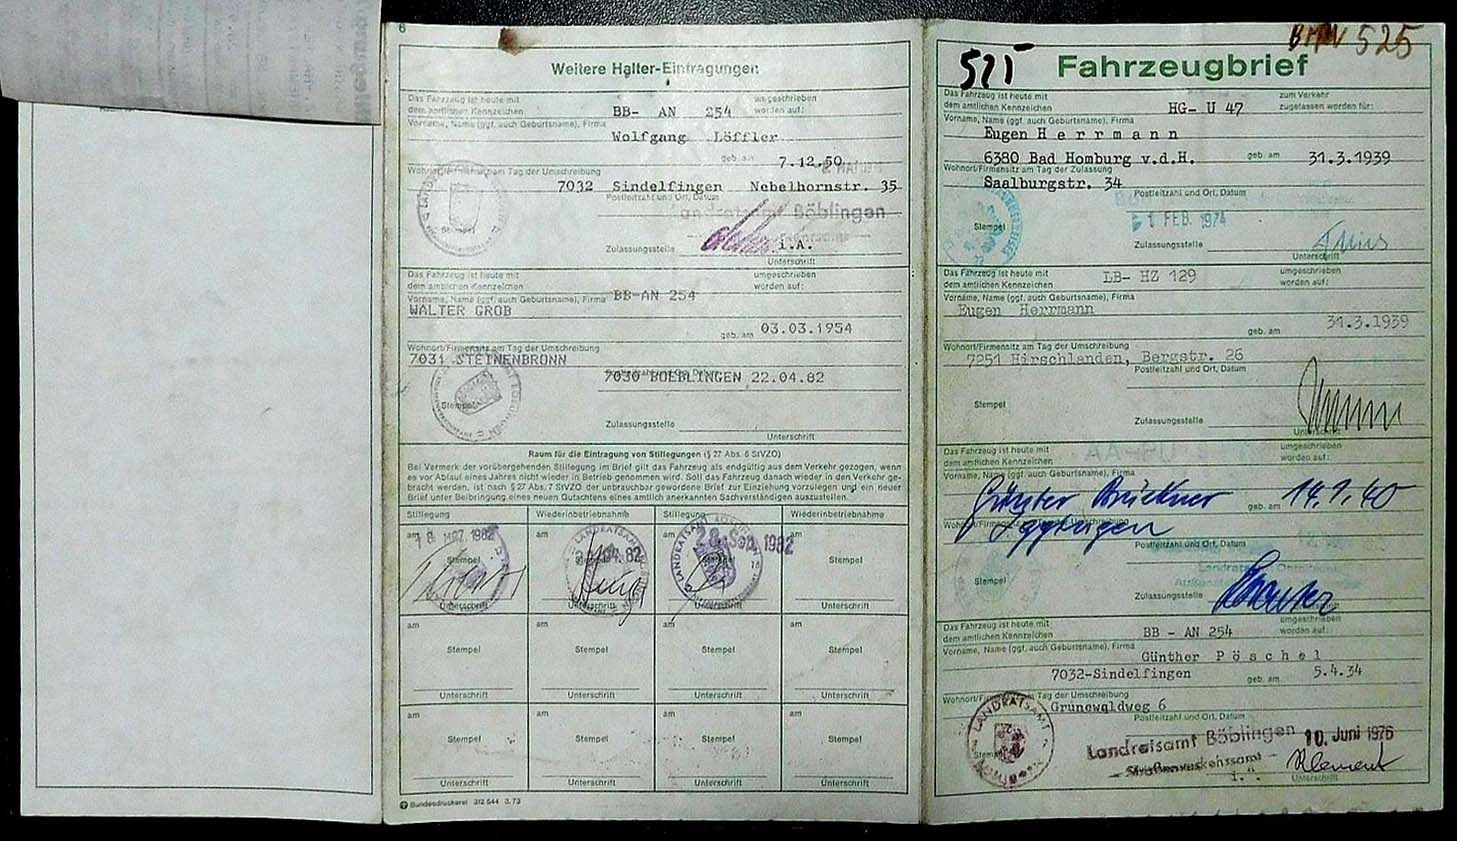 6
Weitere Halter-Eintragungen
Das Fahrzeug ist heute mit
dem amtlichen Kennzeichen
BB- AN 254
umgeschrieben
worden auf:
Vorname, Name (ggf. auch Geburtsname), Firma
Wolfgang Löffler
geb. am
7.12.50
Wohnort/Firmensitz am Tag der Umschreibung
7032 Sindelfingen Nebelhornstr. 35
Postleitzahl und Ort, Datum
Landratsamt Böblingen
Stempel
Zulassungsstelle
i.A.
Unterschrift
Das Fahrzeug ist heute mit
dem amtlichen Kennzeichen
BB-AN 254
umgeschrieben
worden auf:
Vorname, Name (ggf. auch Geburtsname), Firma
WALTER GROB
geb. am
03.03.1954
Wohnort/Firmensitz am Tag der Umschreibung
7031 STEINENBRONN
7030 BOEBLINGEN 22.04.82
Stempel
Zulassungsstelle
Unterschrift
Raum für die Eintragung von Stillegungen (§ 27 Abs. 6 StVZO)
Bei Vermerk der vorübergehenden Stillegung im Brief gilt das Fahrzeug als endgültig aus dem Verkehr gezogen, wenn
es vor Ablauf eines Jahres nicht wieder in Betrieb genommen wird. Soll das Fahrzeug danach wieder in den Verkehr ge-
bracht werden, ist nach § 27 Abs. 7 StVZO der unbrauchbar gewordene Brief zur Einziehung vorzulegen und ein neuer
Brief unter Beibringung eines neuen Gutachtens eines amtlich anerkannten Sachverständigen auszustellen.
Stillegung Wiederinbetriebnahme Stillegung Wiederinbetriebnahme
am am am am
18. MRZ. 1982 04.82 28. Sep. 1982
Stempel Stempel
Unterschrift Unterschrift Unterschrift Unterschrift
am am am am
Stempel Stempel Stempel Stempel
Unterschrift Unterschrift Unterschrift Unterschrift
am am am am
Stempel Stempel Stempel Stempel
Unterschrift Unterschrift Unterschrift Unterschrift
Bundesdruckerei 312 544 3.73
BMW 525
525
Fahrzeugbrief
Das Fahrzeug ist heute mit
dem amtlichen Kennzeichen
HG- U 47
zum Verkehr
zugelassen worden für:
Vorname, Name (ggf. auch Geburtsname), Firma
Eugen Herrmann
6380 Bad Homburg v.d.H.
geb. am
31.3.1939
Wohnort/Firmensitz am Tag der Zulassung
Saalburgstr. 34
Postleitzahl und Ort, Datum
1 FEB. 1974
Stempel
Zulassungsstelle
Unterschrift
Das Fahrzeug ist heute mit
dem amtlichen Kennzeichen
LB- HZ 129
umgeschrieben
worden auf:
Vorname, Name (ggf. auch Geburtsname), Firma
Eugen Herrmann
geb. am
31.3.1939
Wohnort/Firmensitz am Tag der Umschreibung
7251 Hirschlanden, Bergstr. 26
Postleitzahl und Ort, Datum
Stempel
Zulassungsstelle
Das Fahrzeug ist heute mit
dem amtlichen Kennzeichen
umgeschrieben
worden auf:
Vorname, Name (ggf. auch Geburtsname), Firma
Günter Brückner
geb. am
14.1.40
Postleitzahl und Ort, Datum
Stempel
Zulassungsstelle
Das Fahrzeug ist heute mit
dem amtlichen Kennzeichen
BB - AN 254
umgeschrieben
worden auf:
Vorname, Name (ggf. auch Geburtsname), Firma
Günther Pöschel
7032-Sindelfingen
geb. am
5.4.34
Tag der Umschreibung
Grünewaldweg 6
Postleitzahl und Ort, Datum
LANDRATSAMT
Landratsamt Böblingen 10. Juni 1976
Straßenverkehrsamt
Klement
Unterschrift